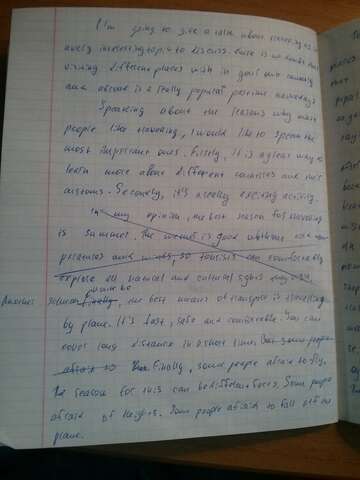 I'm going to give a talk about travelling. It's a
very interesting topic to discuss. There is no doubt that
visiting different places with in your own country
and abroad is a really popular pastime nowadays
Speaking about the reasons why many
people like travelling, I would like to speak the
most important ones. Firstly, it is a great way to
learn more about different countries and their
customs. Secondly, it's a really exciting activity.
In my opinion, the best season for travelling
is summer. The weather is good
pleasures and so tourists can comfortably
explore all natural and cultural sights
Another
Finally, the best means of transport is travelling
by plane. It's fast, safe and comfortable. You can
cover long distance in a short time. But some people
afraid to Finally, some people afraid to fly,
The reason for this can be different fears. Some people
afraid of heights. Some people afraid to fall off the
plane.